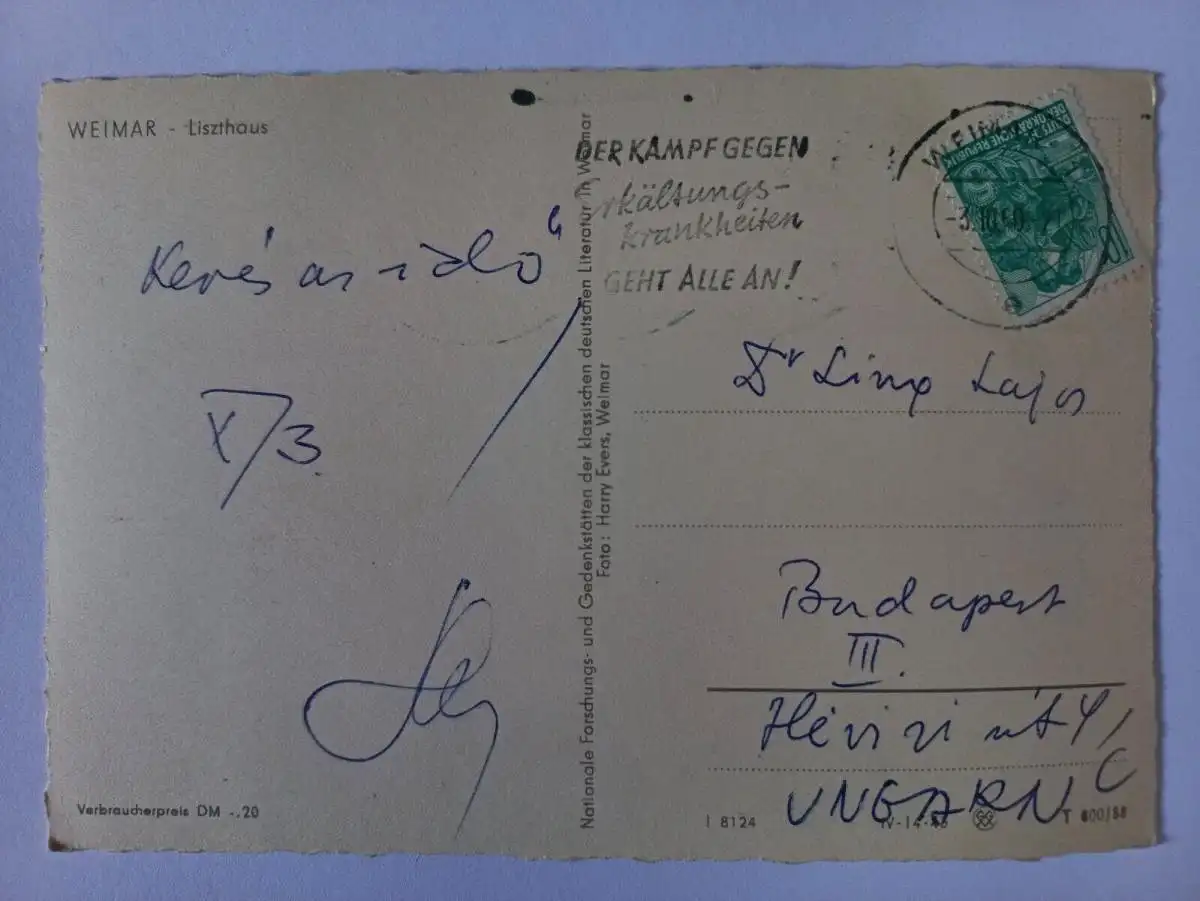 WEIMAR - Liszthaus
Kevés az idő"
X/3.
Verbraucherpreis DM -.20
Nationale Forschungs- und Gedenkstätten der klassischen deutschen Literatur in Weimar
Foto: Harry Evers, Weimar
DER KAMPF GEGEN
rkältungs-
krankheiten
GEHT ALLE AN!
DEUTSCHE
DEMOKRATISCHE REPUBLIK
Dr Linx Lajos
Budapest
III.
Hévizi út 4/
UNGARN
I 8124